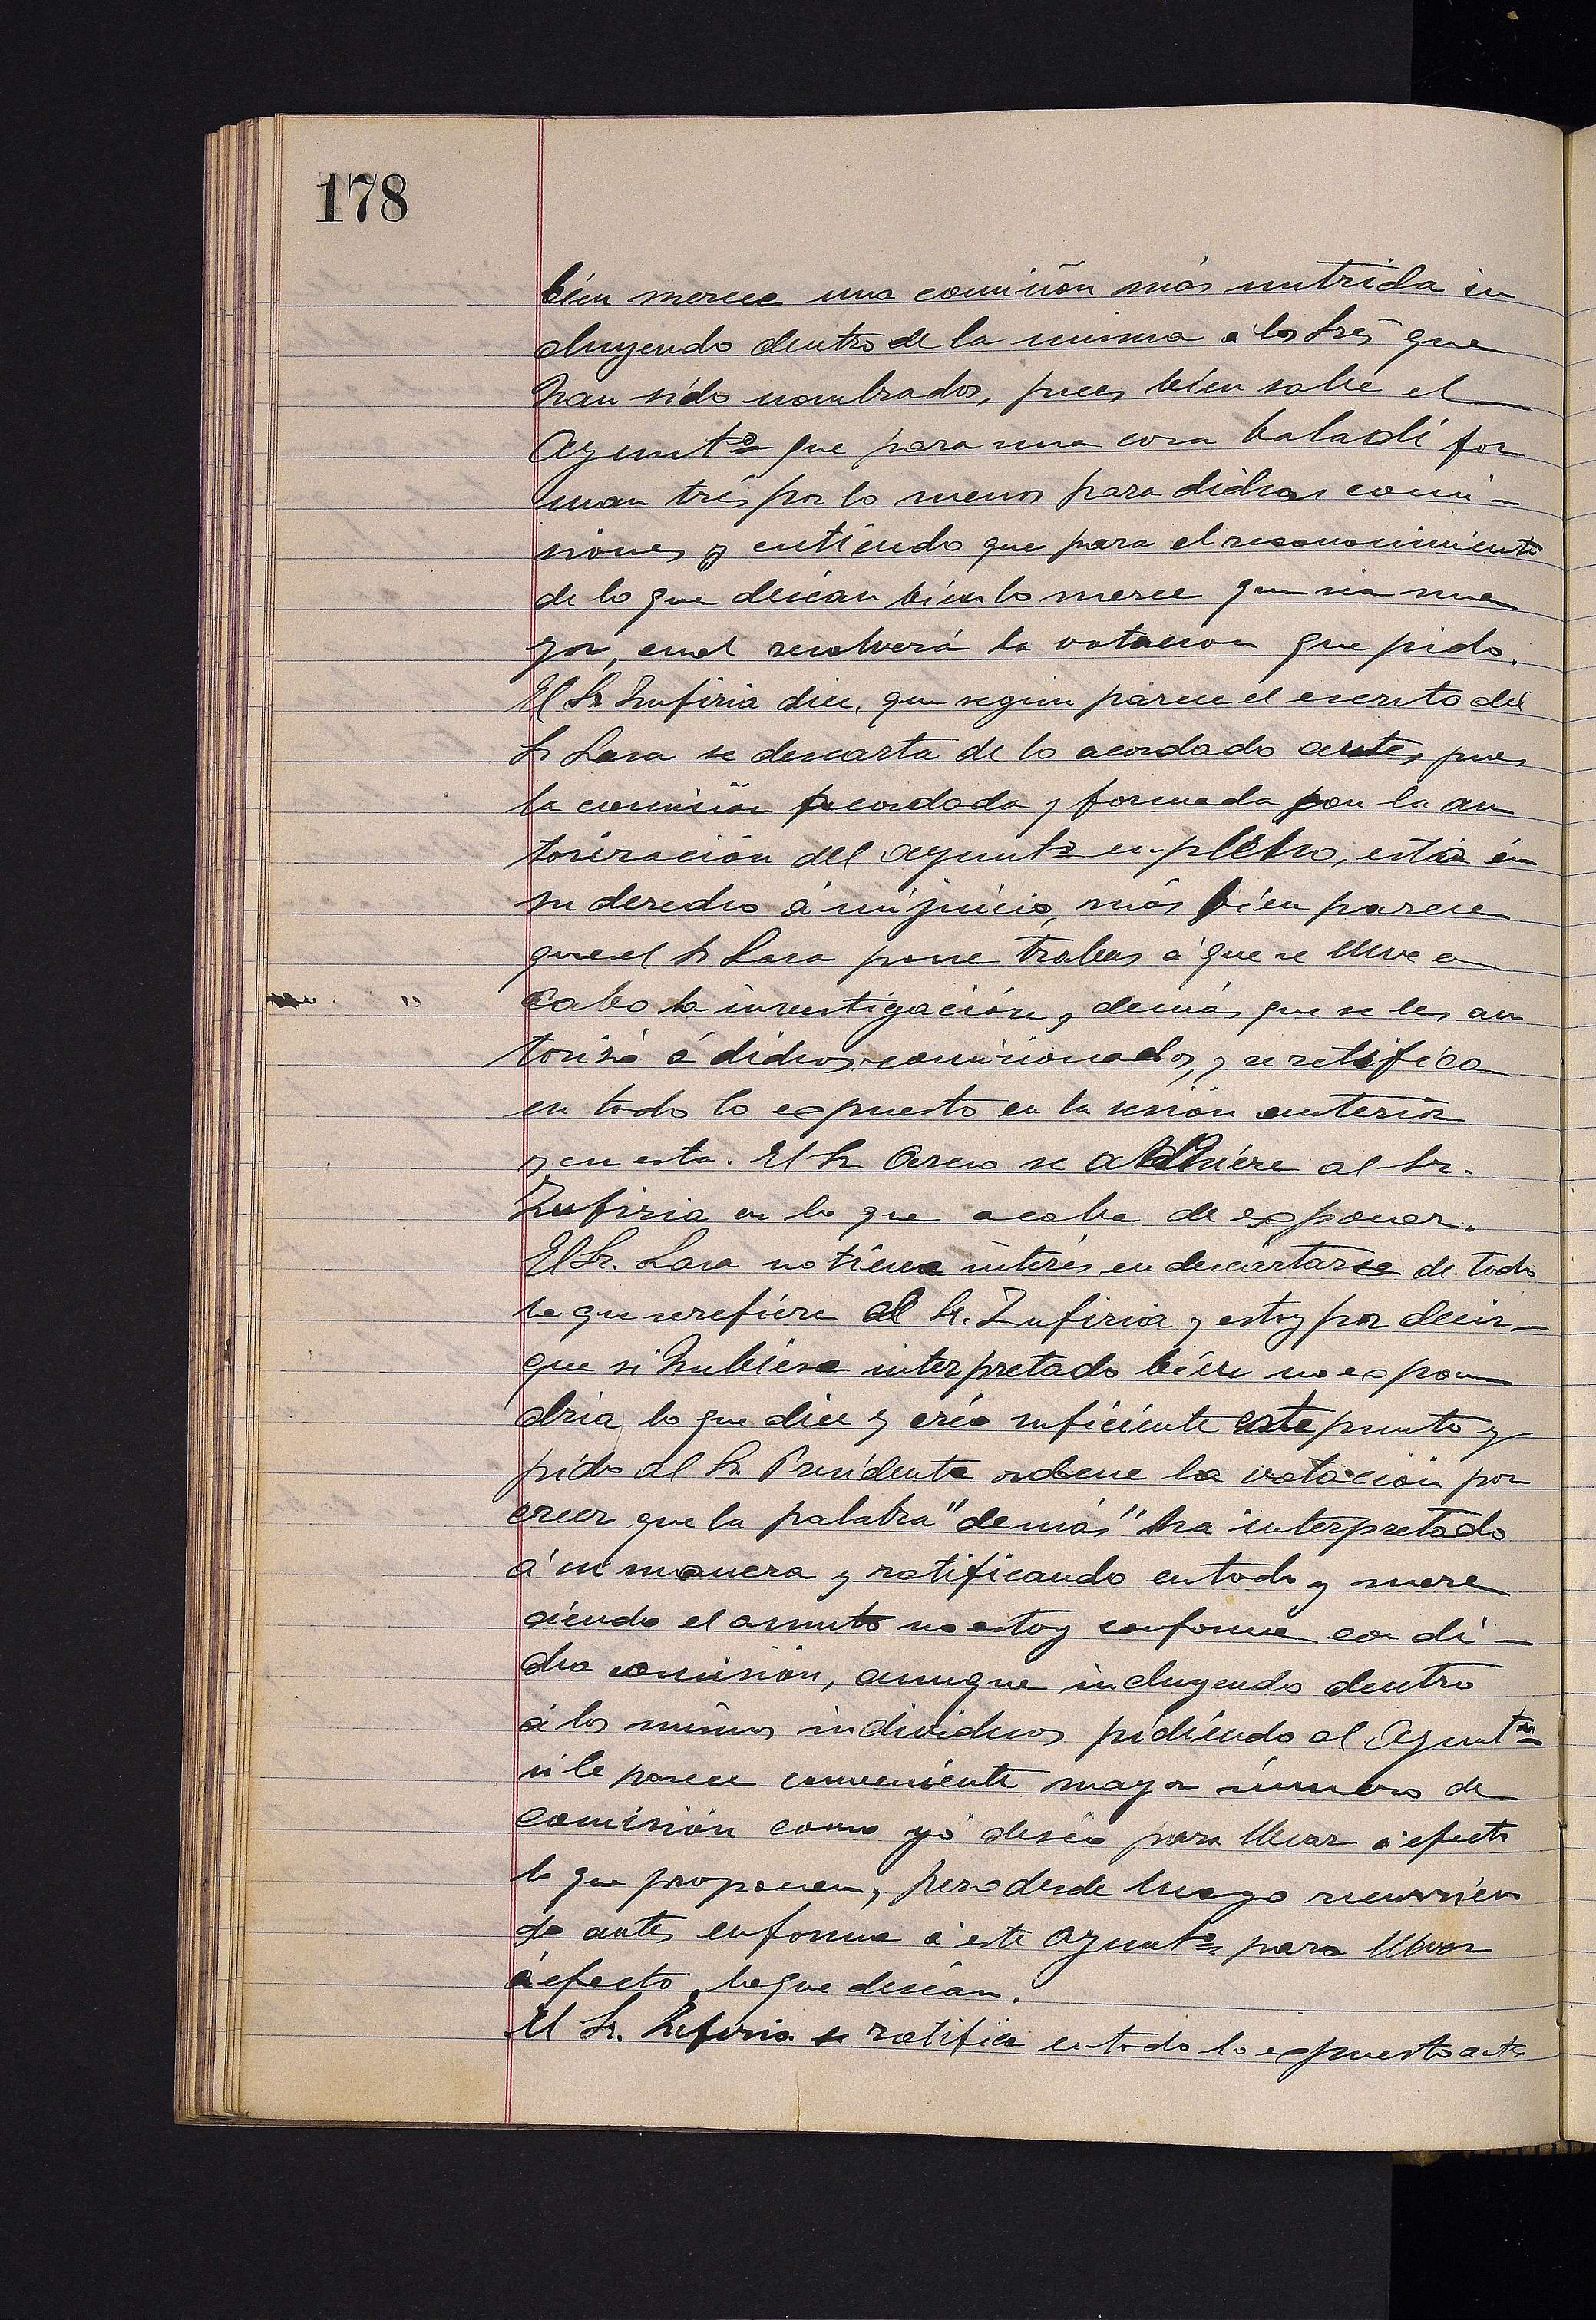 178
bién merece una comisión más nutrida in
cluyendo dentro de la misma a los tres que
han sido nombrados, pues bién sabe el
Ayuntº que para una cosa baladí for
man trés por lo menos para dichas comi-
siones y entiendo que para el reconocimiento
de lo que deséan bién lo merece que séa ma
yor, cual resolverá la votacion que pido.
El Sr Zufiria dice, que según parece el escrito del
Sr Lasa se descarta de lo acordado antes, pues
la comisión acordada y formada por la au
torización del Ayuntº en pleno, está én
su derecho á mi juicio, más bién parece
que el Sr Lasa pone trabas á que se lleve a
cabo la investigación y demás que se les au
torisó á dichos comisionados, y se ratifica
en todo lo expuesto en la sesión anterior
y en esta. El Sr se adhiére al Sr.
Zufiria en lo que acaba de exponer.
El Sr. Lasa no tiene interés en descartarse de todo
lo que se refiére al Sr. Zufiria y estoy por decir-
que si hubiése interpretado bién no expon
dria lo que dice y créo suficiénte este punto y
pido al Sr. Presidente ordene la votación por
creer que la palabra "demás" ha interpretado
á su manera y ratificando en todo y mere
ciendo el asunto no estoy conforme con di-
cha comisión, aunque incluyendo dentro
á los mismos individuos pidiéndo al Ayuntº
si le parece conveniénte mayor número de
comisión como yo deséo para llevar á efecto
lo que proponen, pero desde luego
do antes en forma á este Ayuntº para llevar
á efecto lo que deséan.
El Sr. Zufiria se ratifica en todo lo expuesto antes